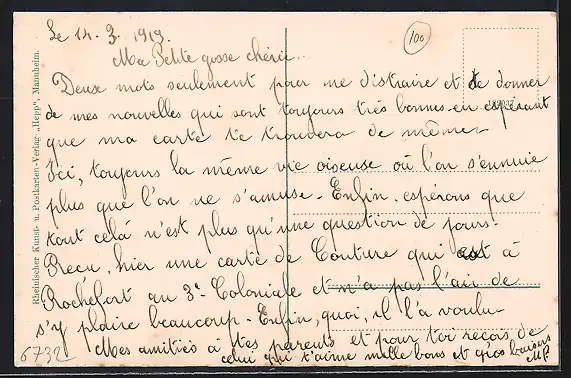 Le 14. 3. 1919.
100
Ma Petite gosse chérie..
Deux mots seulement pour me distraire et te donner
de mes nouvelles qui sont toujours très bonnes en espérant
que ma carte te trouvera de même
Ici, toujours la même vie oiseuse où l'on s'ennuie
plus que l'on ne s'amuse. Enfin, espérons que
tout celà n'est plus qu'une question de jours.
Reçu, hier une carte de Couture qui est à
Rochefort au 3e Coloniale et n'a pas l'air de
s'y plaire beaucoup. Enfin, quoi, il l'a voulu
Mes amitiés à tes parents et pour toi reçois de
celui qui t'aime mille bons et gros baisers
Rheinischer Kunst- u. Postkarten-Verlag „Hepp", Mannheim.
6732